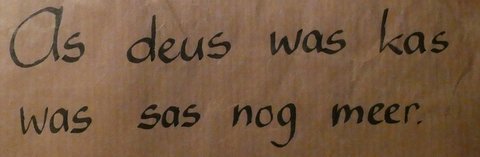 As deus was kas
was sas nog meer.